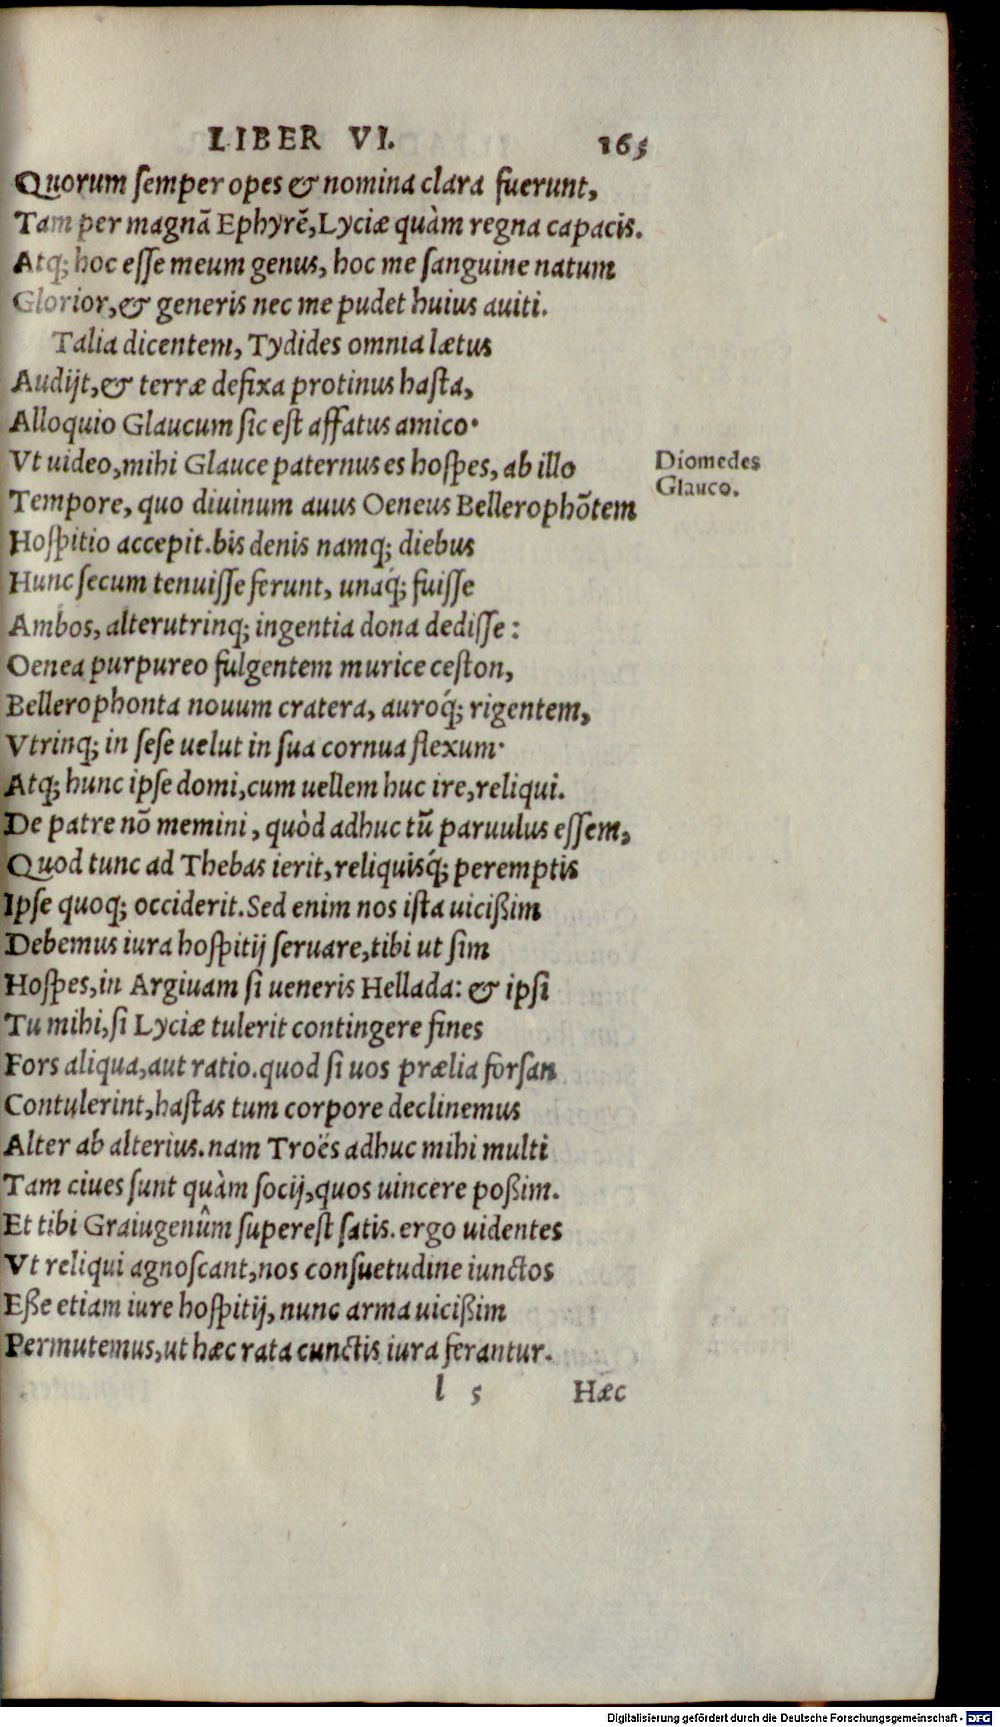 LIBER VI. 165
Quorum semper opes & nomina clara fuerunt,
Tam per magnā Ephyrē, Lyciæ quàm regna capacis.
Atq; hoc esse meum genus, hoc me sanguine natum
Glorior, & generis nec me pudet huius auiti.
Talia dicentem, Tydides omnia lætus
Audijt, & terræ defixa protinus hasta,
Alloquio Glaucum sic est affatus amico.
Vt uideo, mihi Glauce paternus es hospes, ab illo
Diomedes
Glauco.
Tempore, quo diuinum auus Oeneus Bellerophōtem
Hospitio accepit. bis denis namq; diebus
Hunc secum tenuisse ferunt, unaq́; fuisse
Ambos, alterutrinq; ingentia dona dedisse:
Oenea purpureo fulgentem murice ceston,
Bellerophonta nouum cratera, auroq́; rigentem,
Vtrinq; in sese uelut in sua cornua flexum.
Atq; hunc ipse domi, cum uellem huc ire, reliqui.
De patre nō memini, quòd adhuc tū paruulus essem,
Quod tunc ad Thebas ierit, reliquisq́; peremptis
Ipse quoq; occiderit. Sed enim nos ista uicißim
Debemus iura hospitij seruare, tibi ut sim
Hospes, in Argiuam si ueneris Hellada: & ipsi
Tu mihi, si Lyciæ tulerit contingere fines
Fors aliqua, aut ratio. quod si uos prælia forsan
Contulerint, hastas tum corpore declinemus
Alter ab alterius. nam Troës adhuc mihi multi
Tam ciues sunt quàm socij, quos uincere poßim.
Et tibi Graiugenûm superest satis. ergo uidentes
Vt reliqui agnoscant, nos consuetudine iunctos
Eße etiam iure hospitij, nunc arma uicißim
Permutemus, ut hæc rata cunctis iura ferantur.
l 5 Hæc
Digitalisierung gefördert durch die Deutsche Forschungsgemeinschaft - DFG